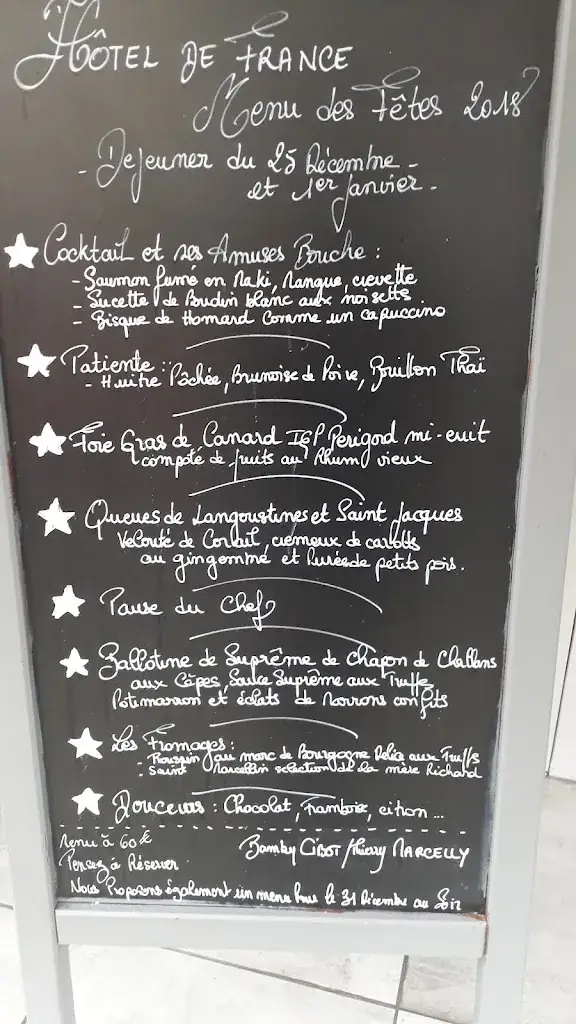 Hôtel de France
Menu des Fêtes 2018
- Dejeuner du 25 Décembre -
et 1er Janvier -
Cocktail et ses Amuses Bouche :
- Saumon fumé en Maki, Mangue, crevette
- Sucette de Boudin blanc aux noisette
- Bisque de Homard Comme un capuccino
Patiente :
- Huitre Pôchée, Brunoise de Poire, Bouillon Thaï
Foie Gras de Canard IGP Perigord mi-cuit
compoté de fruits au Rhum vieux
Queues de Langoustines et Saint Jacques
Velouté de Corail, cremeux de carotte
au gingembre et Purée de petits pois.
Pause du Chef
Ballotine de Suprême de chapon de Challans
aux Cêpes, Sauce Suprême aux Truffe
Potimarron et éclats de Marrons confits
Les Fromages :
- au marc de Bourgogne Délice aux Truffs
- Saint Marcellin sélection de la mère Richard
Douceurs : Chocolat, Framboise, citron ...
Menu à 60€
Pensez à Réserver
Bamby CIBOT Thierry MARCELLY
Nous Proposons également un menu pour le 31 Décembre au Soir